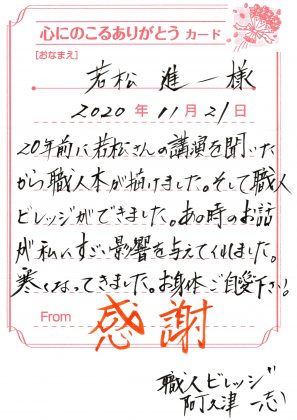 心にのこるありがとう カード
[おなまえ]
若松 進一様
2020 年 11 月 21 日
20年前に若松さんの講演を聞いた
から職人本が描けました。そして職人
ビレッジができました。あの時のお話
が私にすごい影響を与えてくれました。
寒くなってきました。お身体ご自愛下さい。
From
感謝
職人ビレッジ
阿久津 一志